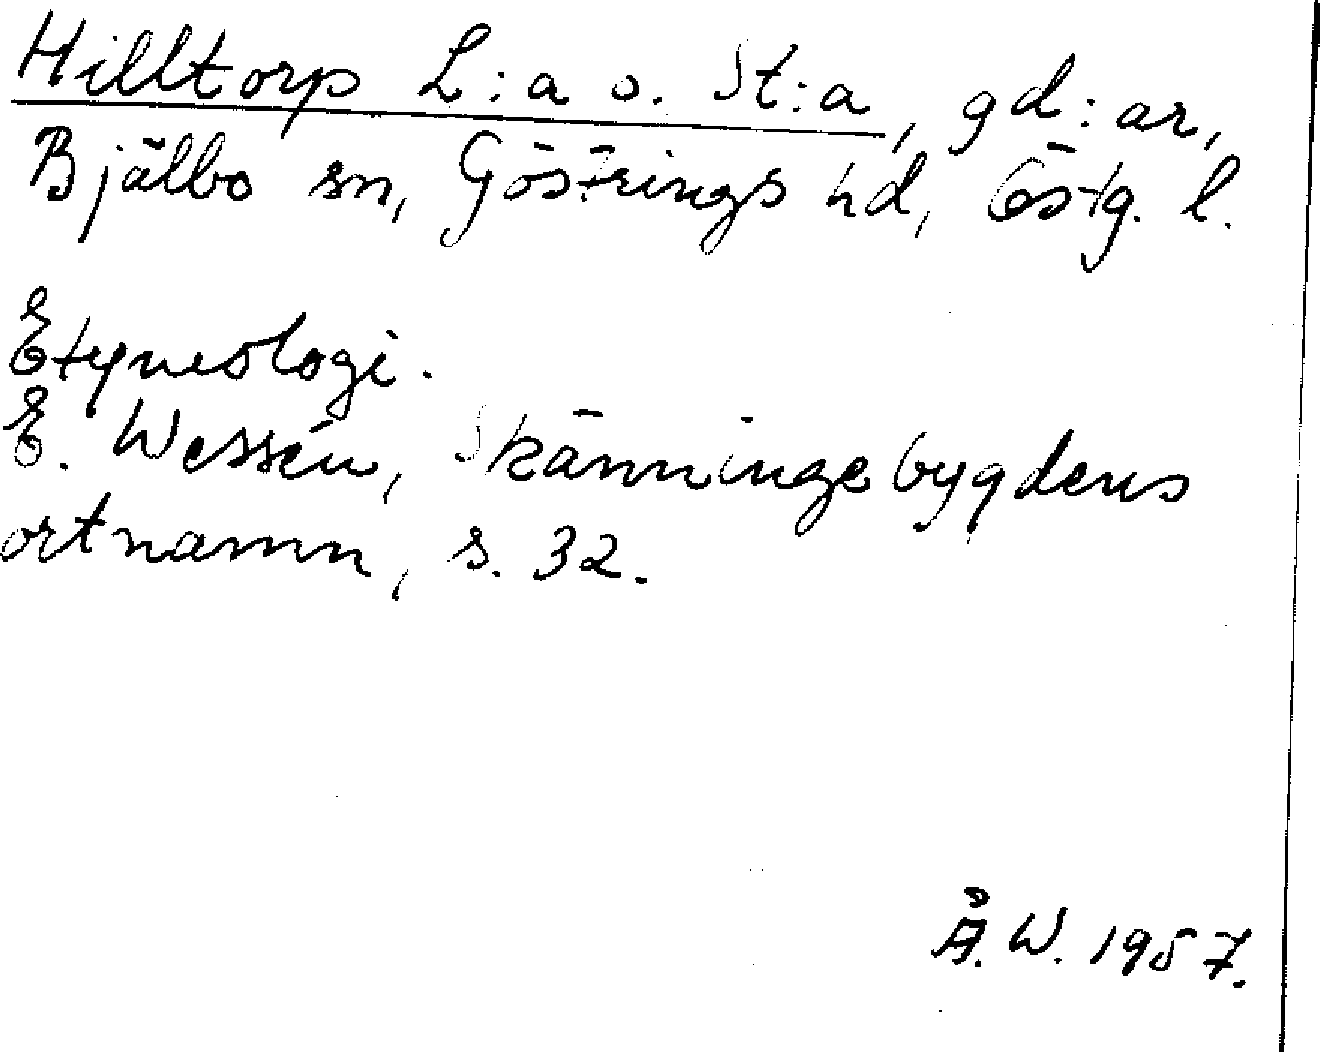 Hilltorp L:a o. St:a, gd:ar,
Bjälbo sn, Göstrings hd, Östg. l.
Etymologi.
E. Wessén, Skänningebygdens
ortnamn, s. 32.
Å. W. 1957.